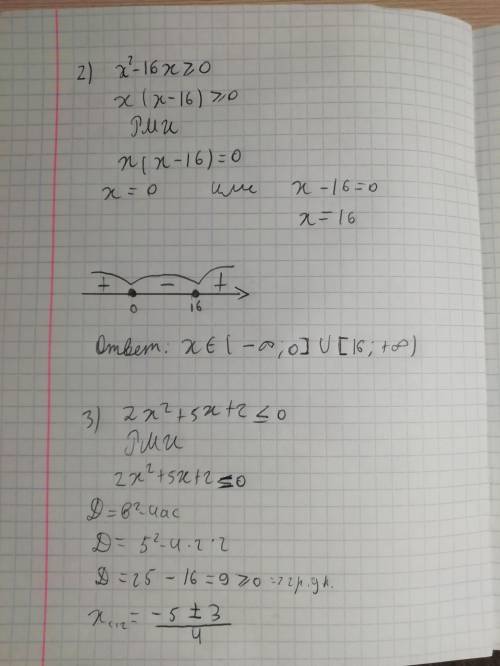 2) x²-16x≥0
x(x-16)≥0
РМИ
x(x-16)=0
x=0 или x-16=0
x=16
+ - +
0 16
Ответ: x∈(-∞;0]∪[16;+∞)
3) 2x²+5x+2≤0
РМИ
2x²+5x+2≤0
D=b²-4ac
D=5²-4·2·2
D=25-16=9≥0
x₁,₂=(-5±3)/4